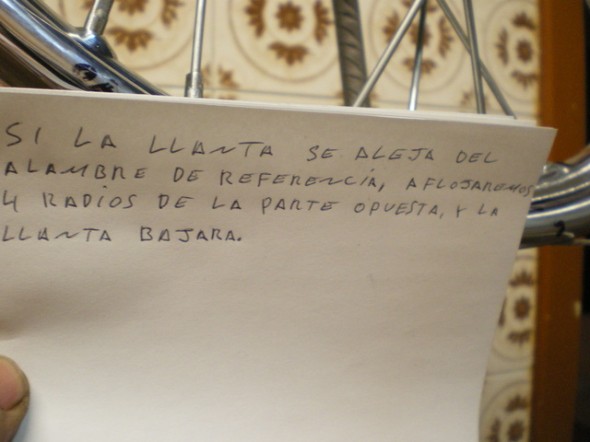 SI LA LLANTA SE ALEJA DEL
ALAMBRE DE REFERENCIA, AFLOJAREMOS
4 RADIOS DE LA PARTE OPUESTA, Y LA
LLANTA BAJARA.